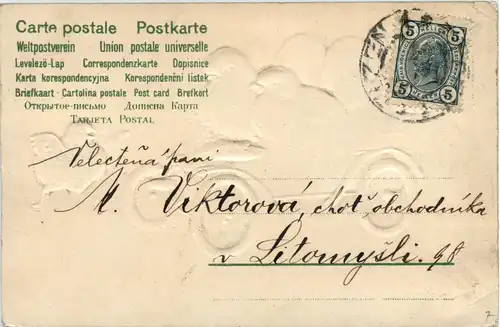 Carte postale Postkarte
Weltpostverein Union postale universelle
Levelező-Lap Correspondenzkarte Dopisnice
Karta korespondencyjna Korespondenční lístek
Briefkaart - Cartolina postale Post card Brefkort
Открытое-письмо Дописна Карта
TARJETA POSTAL
5 HELLER 5
5 5
Velectěná paní
M. Viktorová, choť obchodníka
v Litomyšli. 98
7